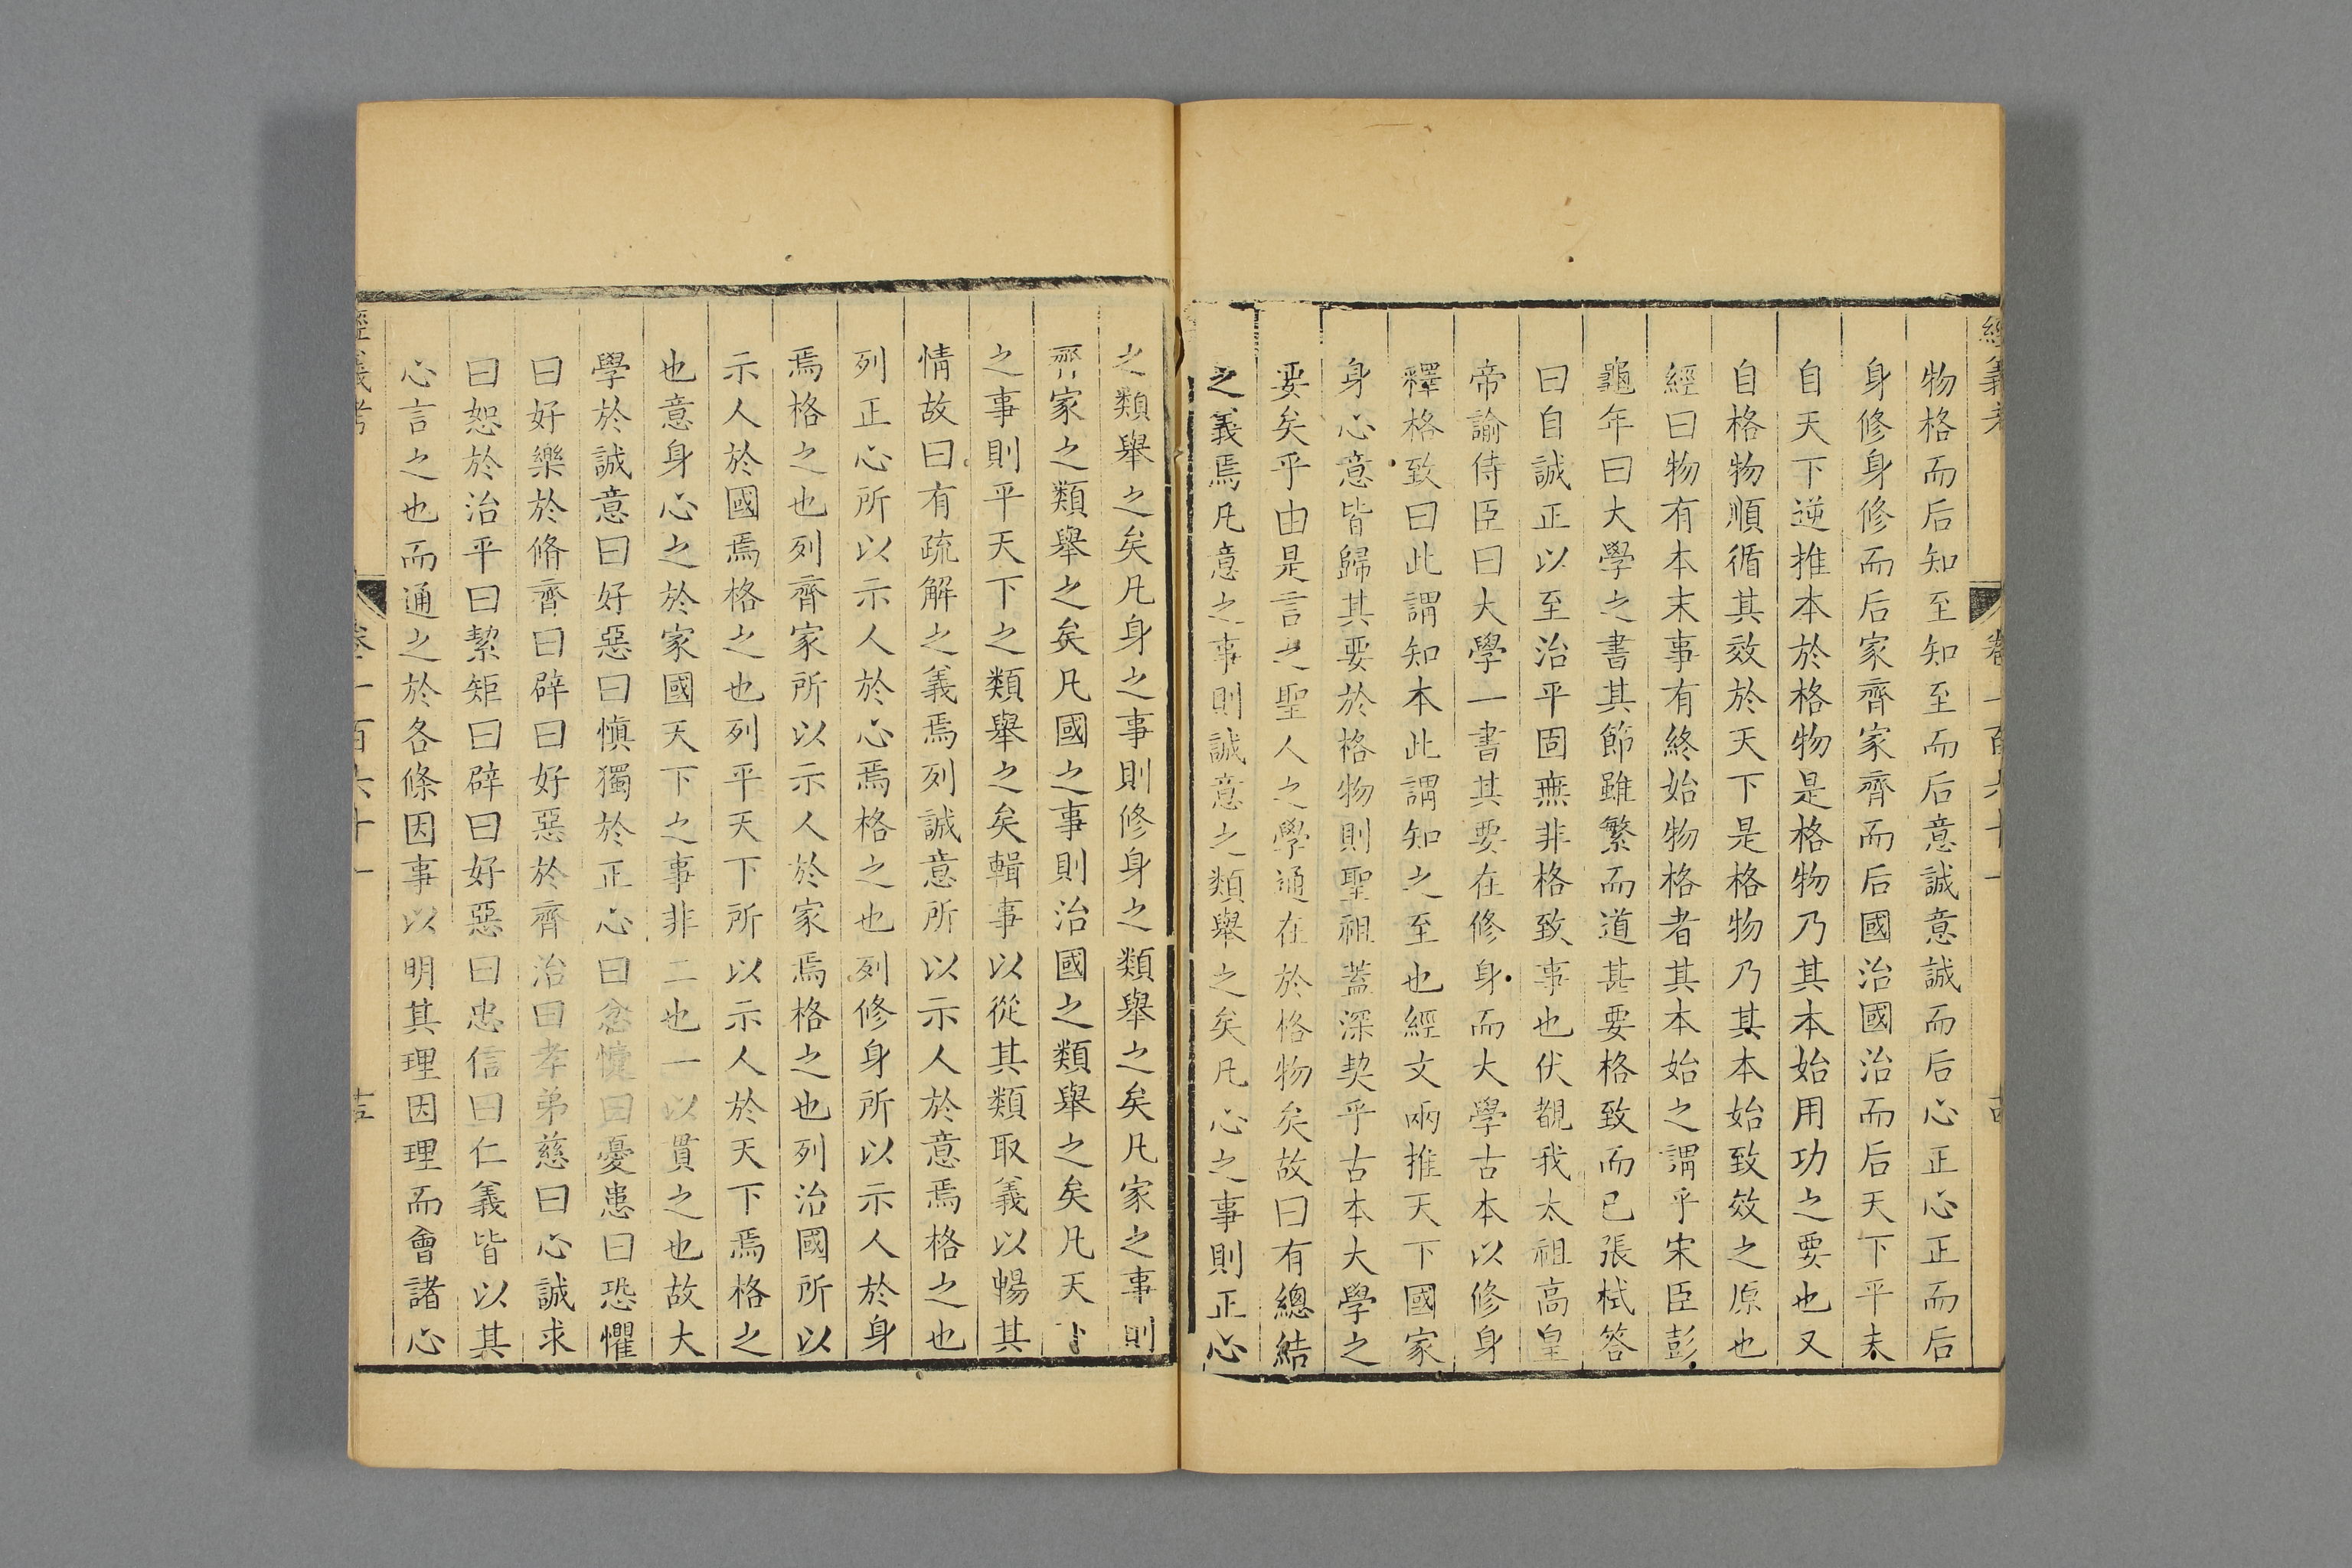 經義考 卷一百六十一
物格而后知至知至而后意誠意誠而后心正心正而后
身修身修而后家齊家齊而后國治國治而后天下平夫
自天下逆推本於格物是格物乃其本始用功之要也又
自格物順循其效於天下是格物乃其本始致效之原也
經曰物有本末事有終始物格者其本始之謂乎宋臣彭
龜年曰大學之書其節雖繁而道甚要格致而已張栻答
曰自誠正以至治平固無非格致事也伏覩我太祖高皇
帝諭侍臣曰大學一書其要在修身而大學古本以修身
釋格致曰此謂知本此謂知之至也經文兩推天下國家
身心意皆歸其要於格物則聖祖蓋深契乎古本大學之
要矣乎由是言之聖人之學通在於格物矣故曰有總結
之義焉凡意之事則誠意之類舉之矣凡心之事則正心
之類舉之矣凡身之事則修身之類舉之矣凡家之事則
齊家之類舉之矣凡國之事則治國之類舉之矣凡天下
之事則平天下之類舉之矣輯事以從其類取義以暢其
情故曰有疏解之義焉列誠意所以示人於意焉格之也
列正心所以示人於心焉格之也列修身所以示人於身
焉格之也列齊家所以示人於家焉格之也列治國所以
示人於國焉格之也列平天下所以示人於天下焉格之
也意身心之於家國天下之事非二也一以貫之也故大
學於誠意曰好惡曰慎獨於正心曰忿懥曰憂患曰恐懼
曰好樂於脩齊曰辟曰好惡於齊治曰孝弟慈曰心誠求
曰恕於治平曰絜矩曰辟曰好惡曰忠信曰仁義皆以其
心言之也而通之於各條因事以明其理因理而會諸心
經義考 卷一百六十一